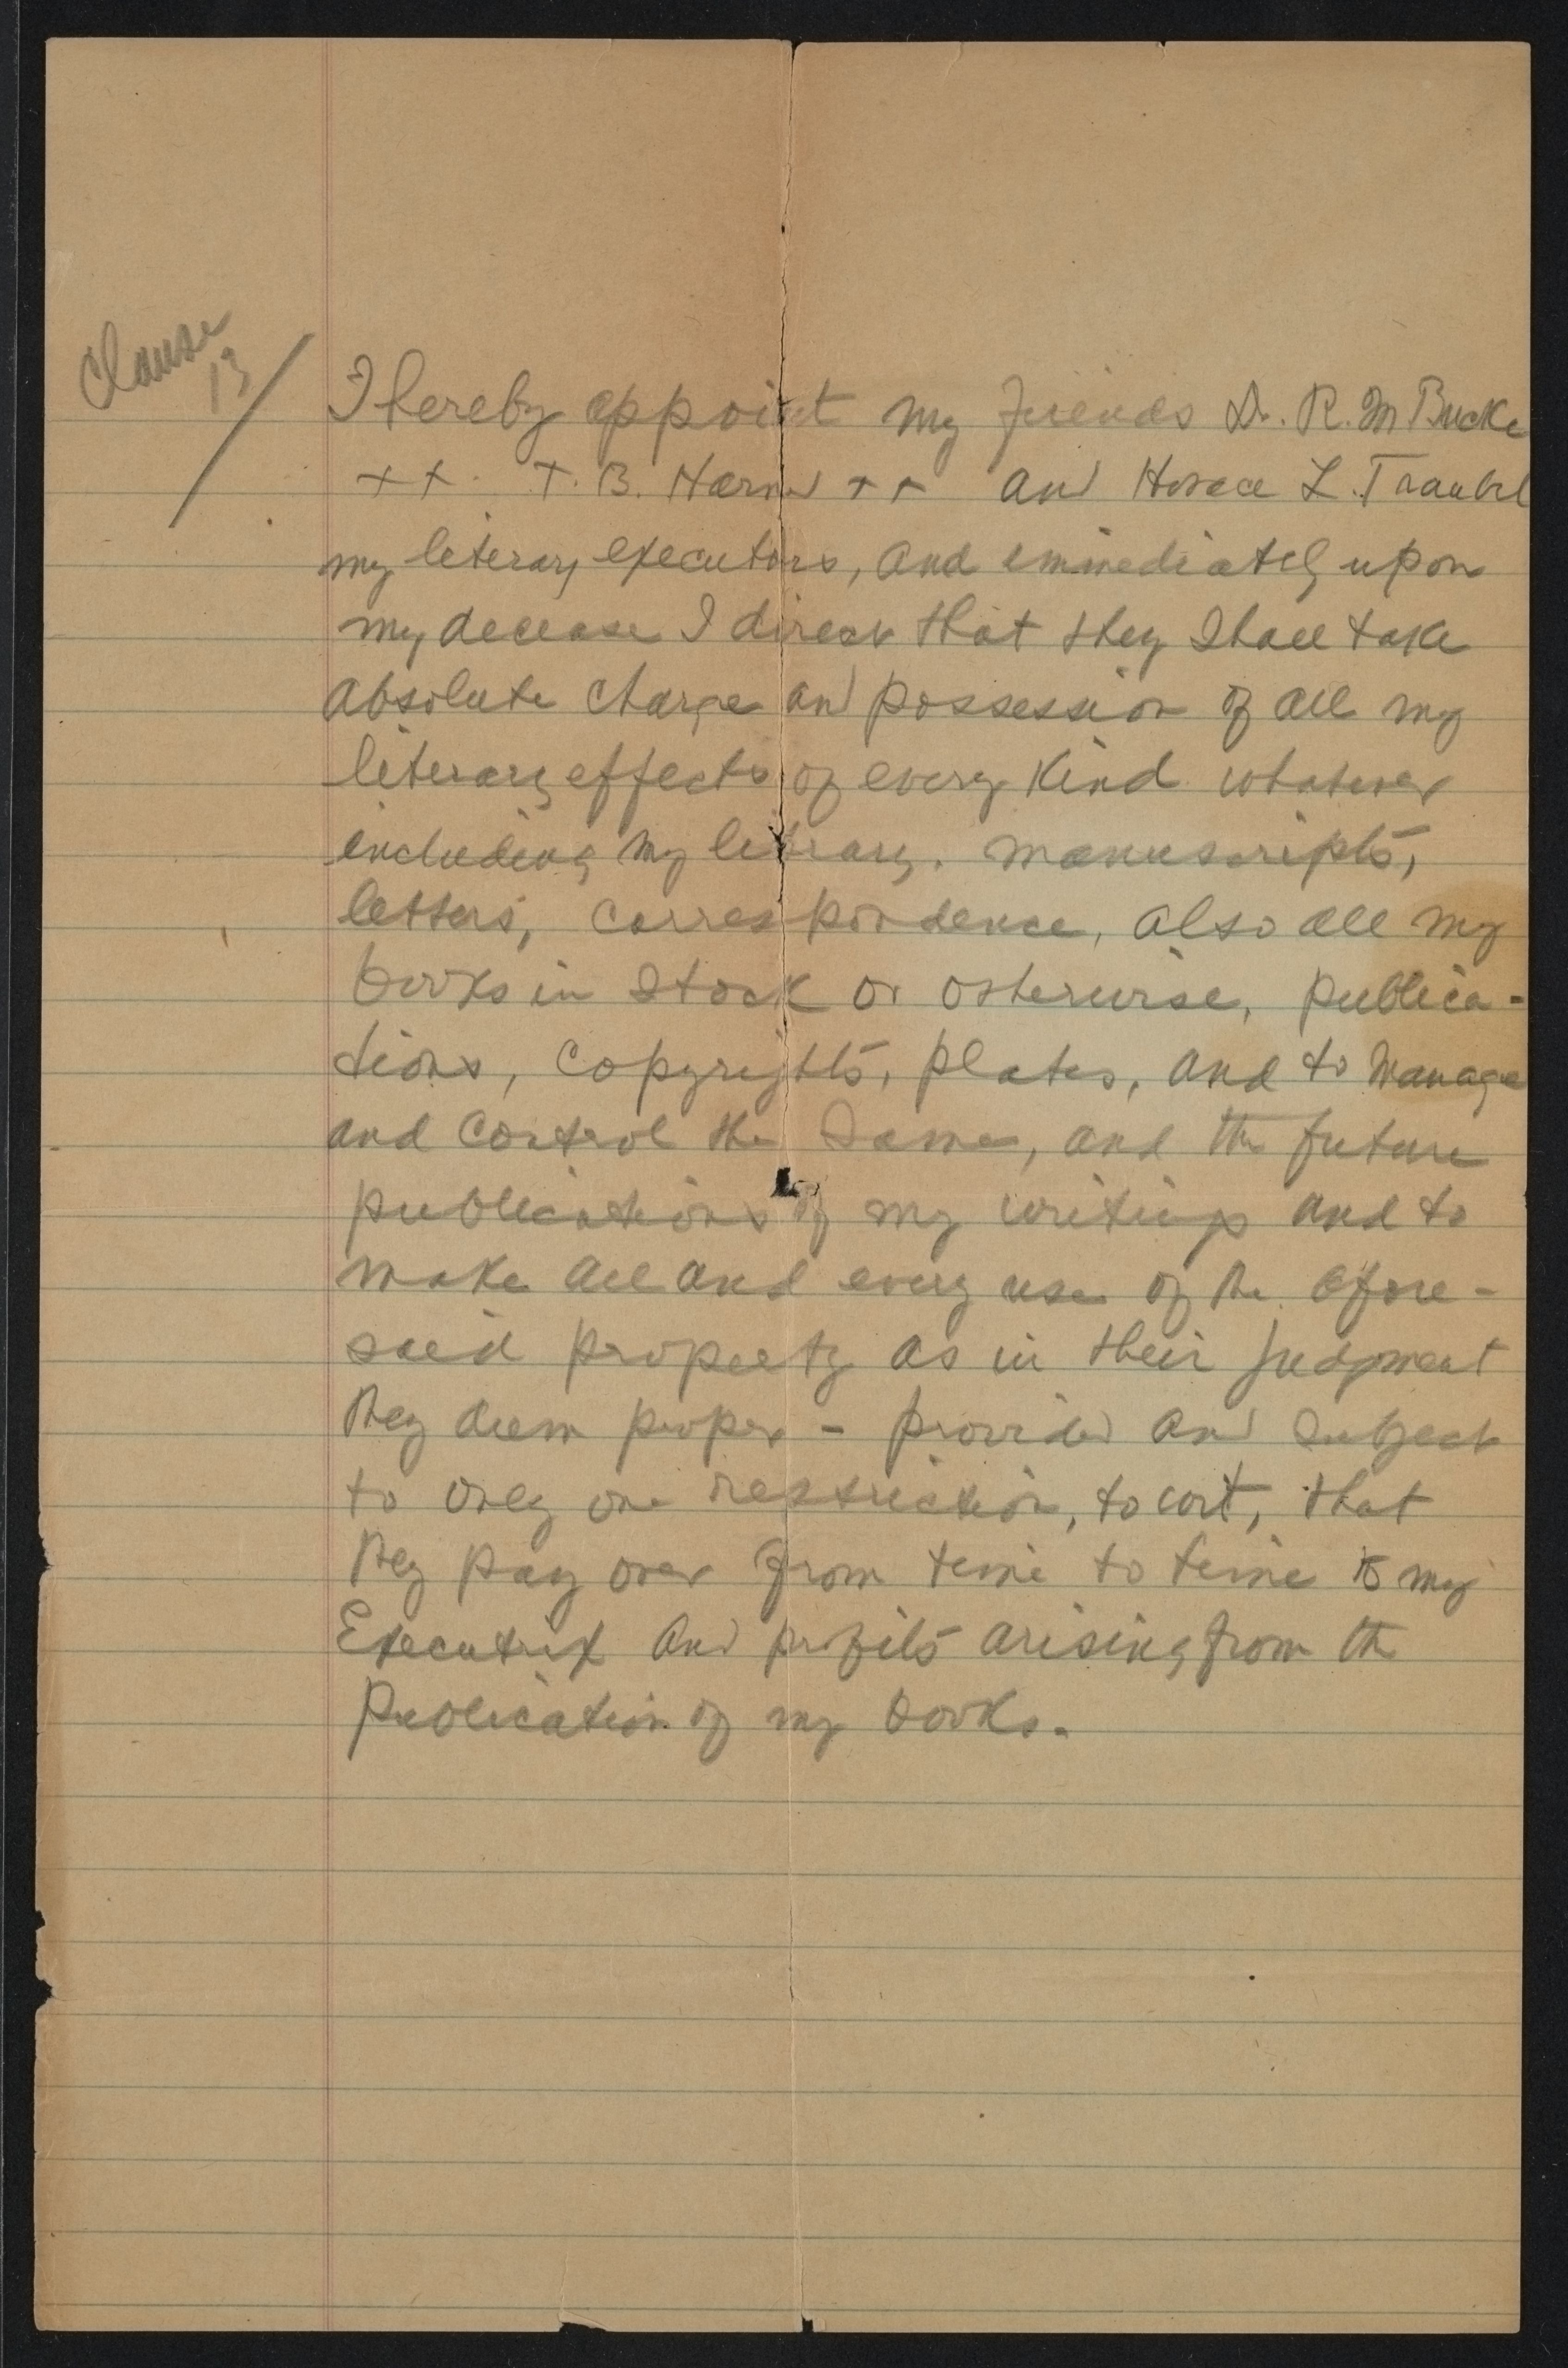 Clause
13
I hereby appoint my friends Dr. R. M Bucke
++ T. B. Harned ++ and Horace L. Traubel
my literary executors, and immediately upon
my decease I direct that they shall take
absolute charge and possession of all my
literary effects of every kind whatever
including my library. manuscripts,
letters, correspondence, also all my
books in stock or otherwise, publica-
tions, copyrights, plates, and to manage
and control the same, and the future
publications of my writings and to
make all and every use of the afore-
said property as in their judgment
they deem proper - provided and subject
to only one restriction, to wit, that
they pay over from time to time to my
Executrix and profits arising from the
publication of my books.